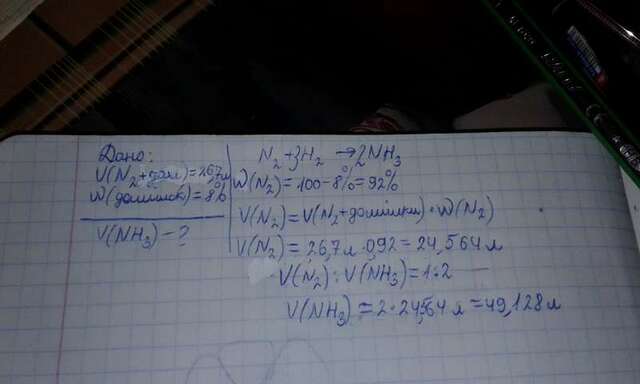 Дано:
V(N₂+дом)=26,7л
W(домішок)=8%
V(NH₃)-?
N₂+3H₂→2NH₃
W(N₂)=100-8%=92%
V(N₂)=V(N₂+домішки)·W(N₂)
V(N₂)=26,7л·0,92=24,564л
V(N₂):V(NH₃)=1:2
V(NH₃)=2·24,564л=49,128л